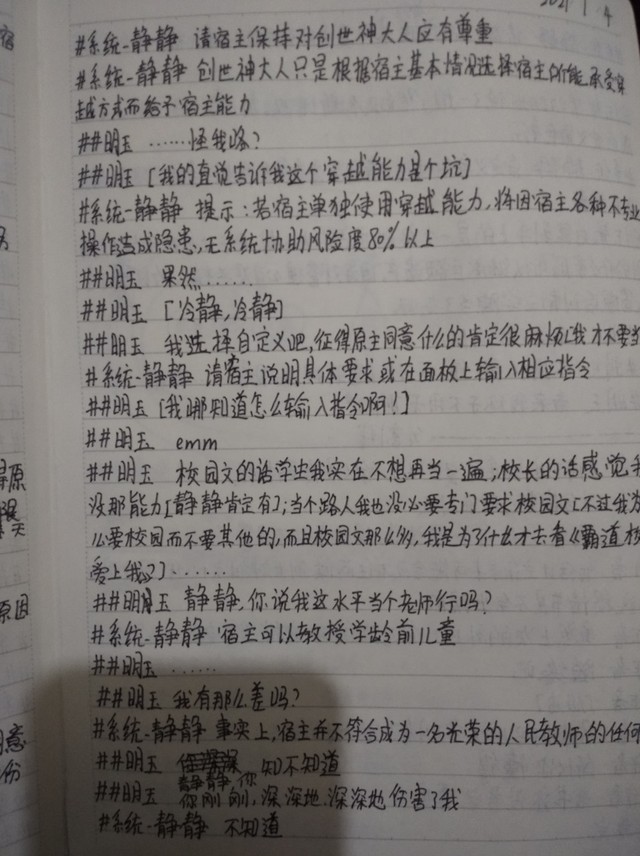 2021 1 4
#系统-静静 请宿主保持对创世神大人应有尊重
#系统-静静 创世神大人只是根据宿主基本情况选择宿主所能承受穿
越方式而给予宿主能力
##明玉 ……怪我咯?
##明玉 [我的直觉告诉我这个穿越能力是个坑]
#系统-静静 提示:若宿主单独使用穿越能力,将因宿主各种不专业
操作造成隐患,无系统协助风险度80%以上
##明玉 果然……
##明玉 [冷静,冷静]
##明玉 我选择自定义吧,征得原主同意什么的肯定很麻烦[我才不要当
#系统-静静 请宿主说明具体要求或在面板上输入相应指令
##明玉 [我哪知道怎么输入指令啊!]
##明玉 emm
##明玉 校园文的话学生我实在不想再当一遍;校长的话感觉我
没那能力[静静肯定有];当个路人我也没必要专门要求校园文[不过我为
么要校园而不要其他的,而且校园文那么多,我是为了什么才去看《霸道校
爱上我》]……
##明玉 静静,你说我这水平当个老师行吗?
#系统-静静 宿主可以教授学龄前儿童
##明玉 ……
##明玉 我有那么差吗?
#系统-静静 事实上,宿主并不符合成为一名光荣的人民教师的任何
##明玉 知不知道
##明玉 静静你
你刚刚,深深地深深地伤害了我
#系统-静静 不知道